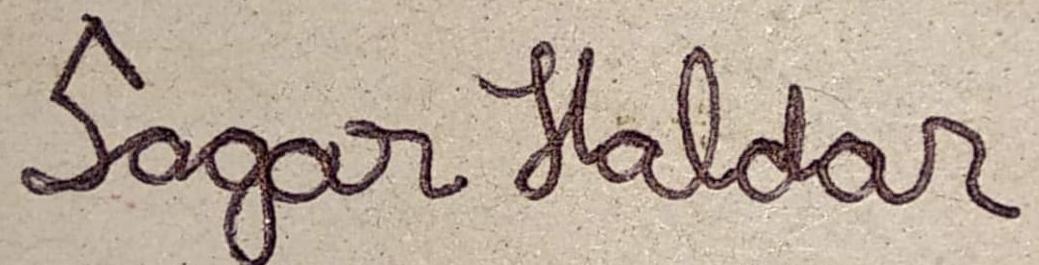 Sagar Haldar